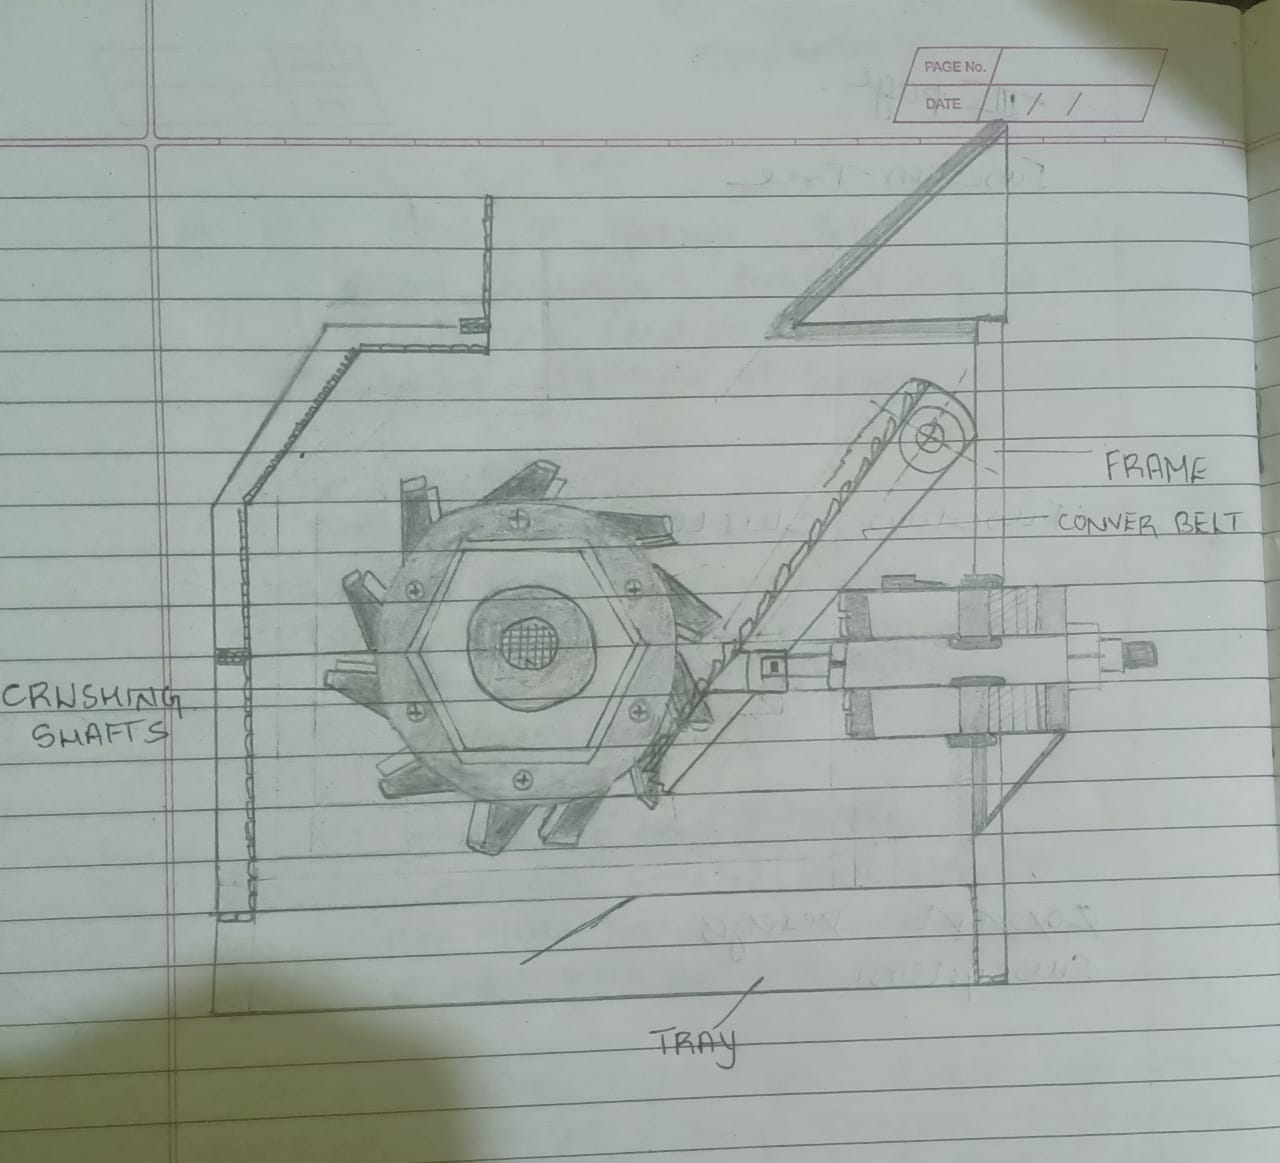 PAGE No.
DATE / /
FRAME
CONVER BELT
CRUSHING
SHAFTS
TRAY